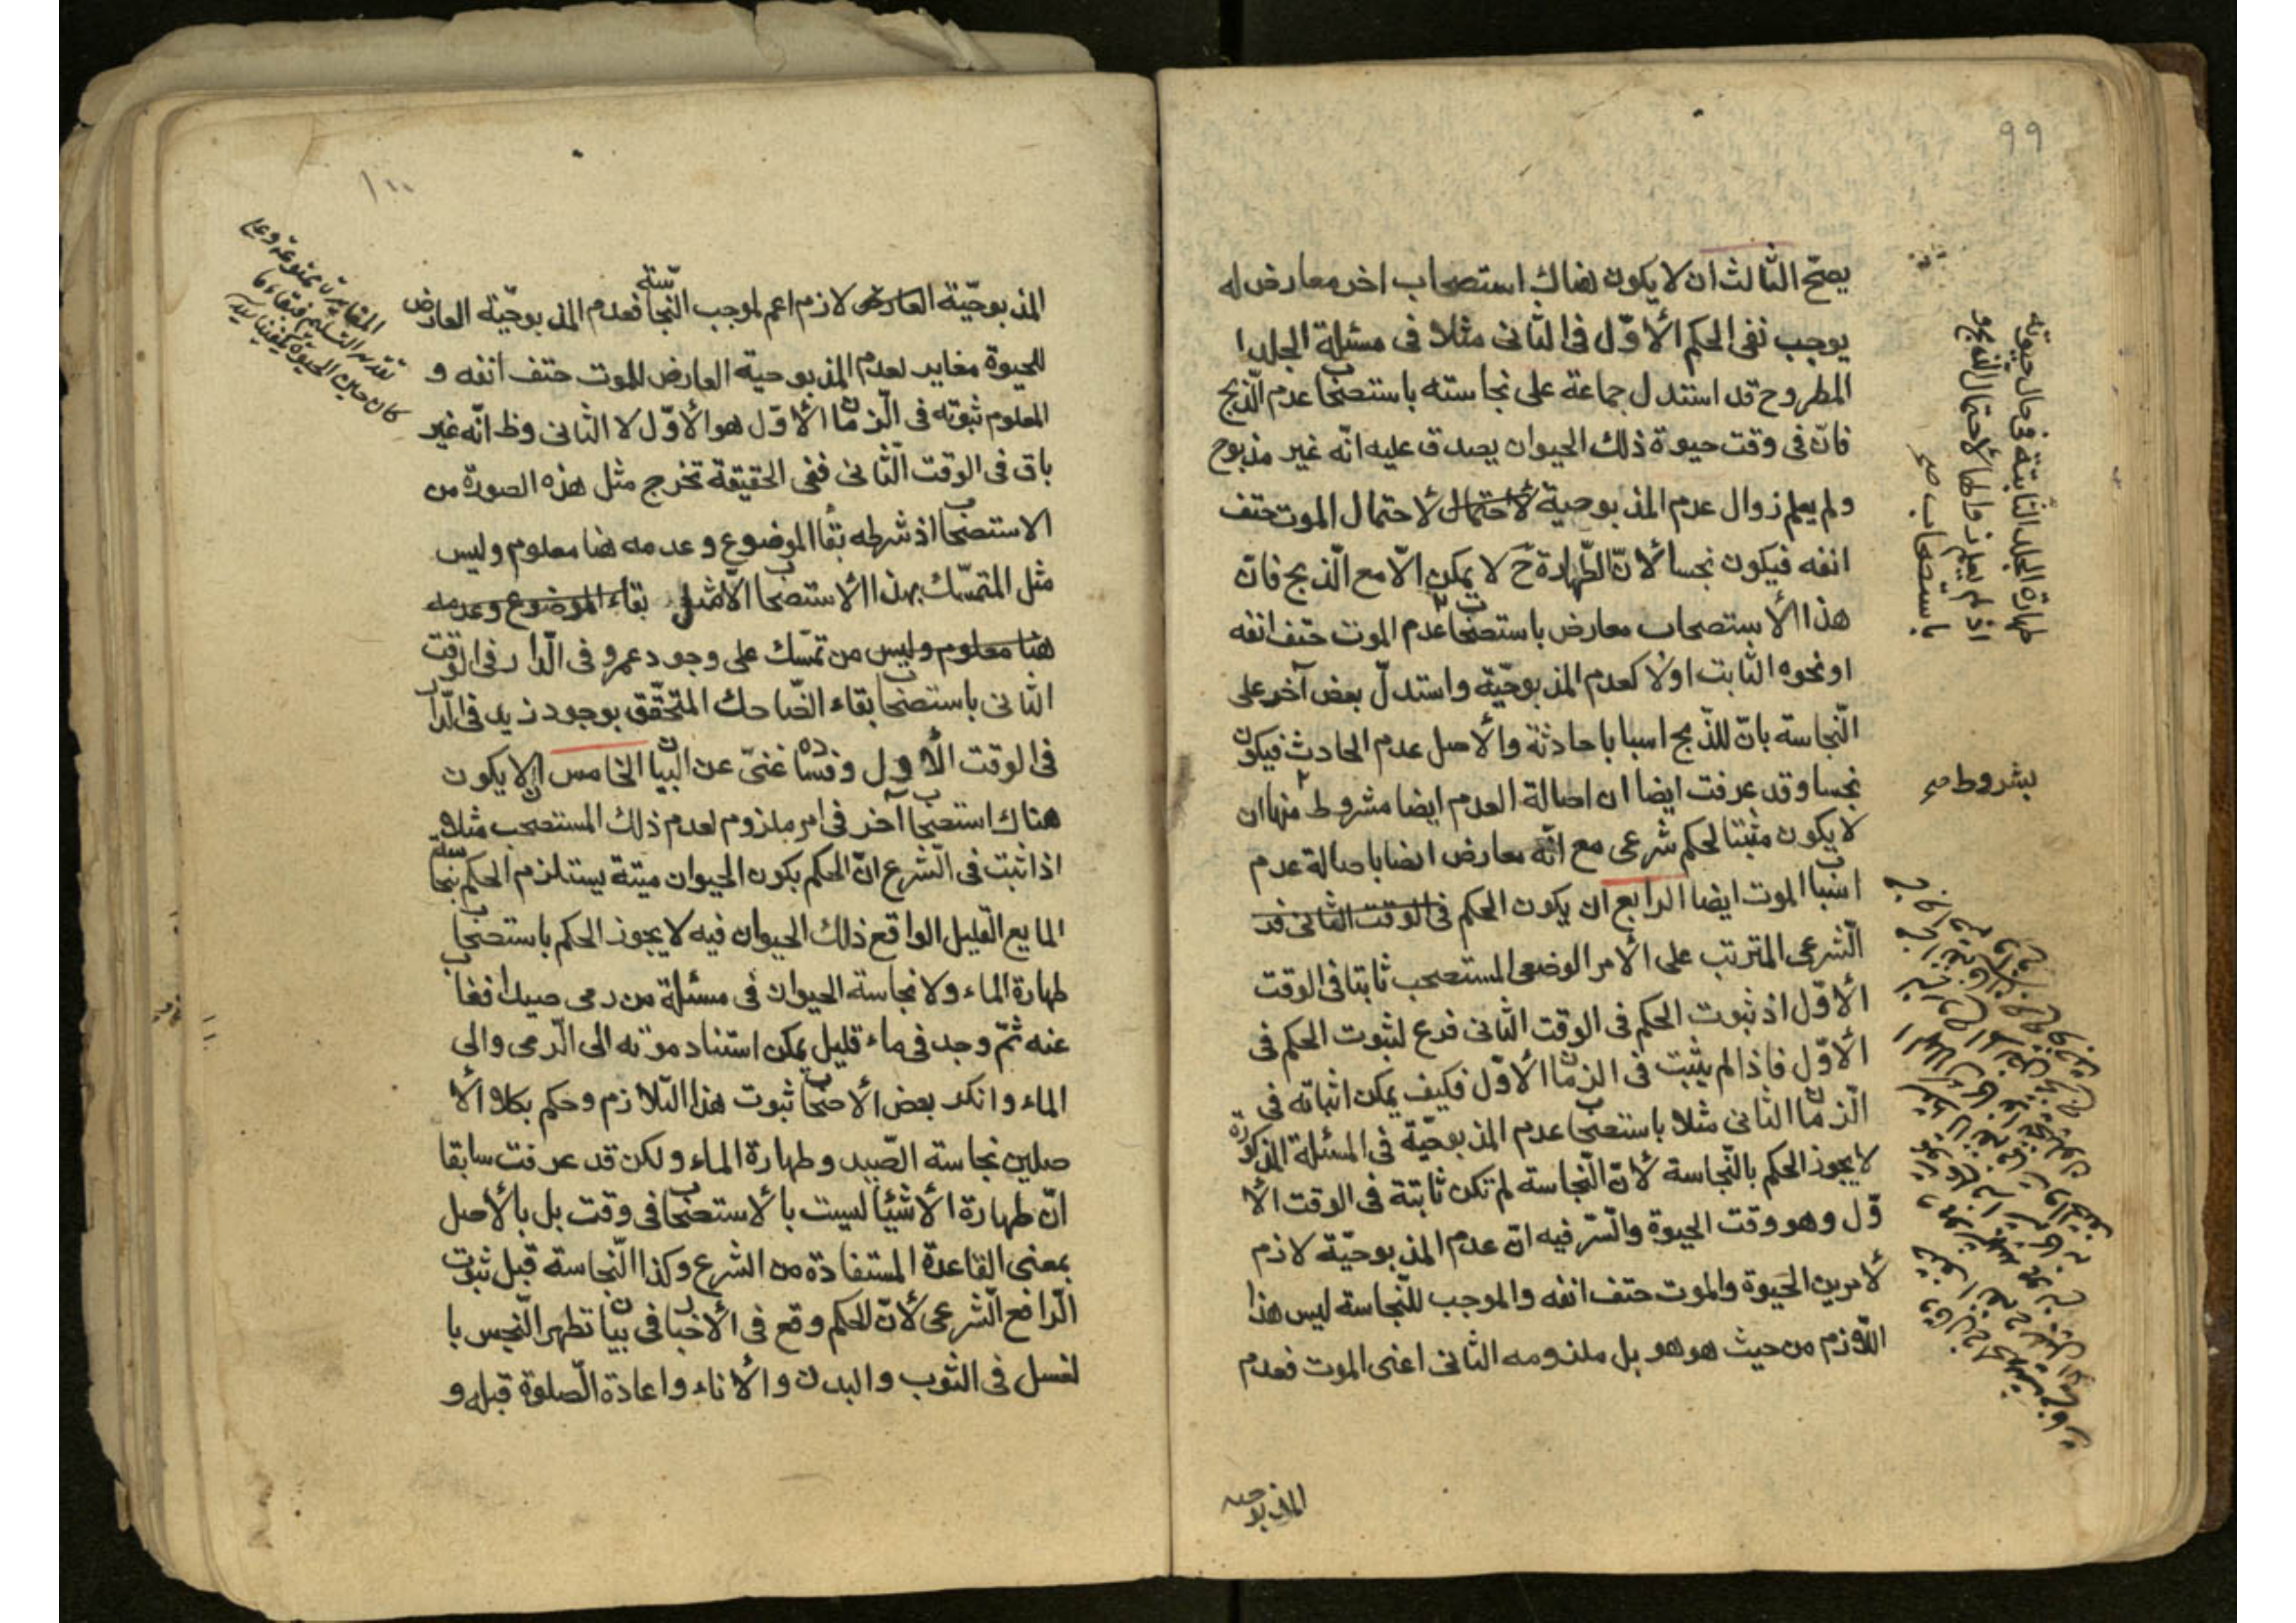 99
يصحّ الثالث ان لا يكون هناك استصحاب اخر معارض له
يوجب نفى الحكم الأوّل فى الثانى مثلا فى مسئلة الجلد ا
المطروح قد استدل جماعة على نجاسته باستصحاب عدم الذّبح
فانّ فى وقت حيوة ذلك الحيوان يصدق عليه انّه غير مذبوح
ولم يعلم زوال عدم المذبوحية لأحتمال لأحتمال الموت حتف
انفه فيكون نجسا لأنّ الطّهارة ح لا يمكن الّا مع الذّبح فانّ
هذا الأستصحاب معارض باستصحاب عدم الموت حتف انفه
او نحوه الثابت اولا كعدم المذبوحيّة واستدلّ بعض آخر على
النّجاسة بانّ للذّبح اسبابا حادثة والأصل عدم الحادث فيكون
نجسا وقد عرفت ايضا ان اصالة العدم ايضا مشروط منها ان
لا يكون مثبتا لحكم شرعى مع انّه معارض ايضا باصالة عدم
اسباب الموت ايضا الرابع ان يكون الحكم فى الوقت الثانى قد
الشّرعى المترتب على الأمر الوضعى المستصحب ثابتا فى الوقت
الأوّل اذ ثبوت الحكم فى الوقت الثانى فرع لثبوت الحكم فى
الأوّل فاذا لم يثبت فى الزمان الأوّل فكيف يمكن اثباته فى
الزّمان الثانى مثلا باستصحاب عدم المذبوحيّة فى المسئلة المذكورة
لا يجوز الحكم بالنّجاسة لأنّ النّجاسة لم تكن ثابتة فى الوقت الأ
وّل وهو وقت الحيوة والسّر فيه انّ عدم المذبوحيّة لازم
لأمرين الحيوة والموت حتف انفه والموجب للنّجاسة ليس هذا
اللّازم من حيث هو هو بل ملزومه الثانى اعنى الموت فعدم
المذبوحيه
طهارة الجلد الثّابتة فى حال حيوته
اذ لم يعلم زوالها لأحتمال الذّبح و
باستصحاب صح
بشروط صح
١٠٠
المذبوحيّة العارض لازم اعم لموجب النّجاسة فعدم المذبوحيّة العارض
للحيوة مغاير لعدم المذبوحية العارض للموت حتف انفه و
المعلوم ثبوته فى الزّمان الأوّل هو الأوّل لا الثانى وظ انّه غير
باق فى الوقت الثّانى ففى الحقيقة تخرج مثل هذه الصورة من
الاستصحاب اذ شرطه بقا الموضوع وعدمه هنا معلوم وليس
مثل المتمسّك بهذا الأستصحاب الّا مثل بقاء الموضوع وعدمه
هنا معلوم وليس من تمسّك على وجود عمرو فى الدّار فى الوقت
الثانى باستصحاب بقاء الضّاحك المتحقّق بوجود زيد فى الدّار
فى الوقت الأول وفساده غنىّ عن البيان الخامس ان لا يكون
هناك استصحاب آخر فى امر ملزوم لعدم ذلك المستصحب مثلا
اذا ثبت فى الشّرع انّ الحكم بكون الحيوان ميتة يستلزم الحكم بنجاسة
المايع القليل الواقع ذلك الحيوان فيه لا يجوز الحكم باستصحاب
طهارة الماء ولا نجاسة الحيوان فى مسئلة من رمى صيدا فغاب
عنه ثمّ وجد فى ماء قليل يمكن استناد موته الى الرّمى والى
الماء وانكر بعض الأصحاب ثبوت هذا التّلازم وحكم بكلا الأ
صلين نجاسة الصّيد وطهارة الماء ولكن قد عرفت سابقا
انّ طهارة الأشيا ليست بالأستصحاب فى وقت بل بالأصل
بمعنى القاعدة المستفادة من الشرع وكذا النّجاسة قبل ثبوت
الرّافع الشّرعى لأنّ الحكم وقع فى الأخبار فى بيان تطهر النّجس با
لغسل فى الثوب والبدن والأناء واعادة الصّلوة قبله و
المغايرة ممنوعة وعلى
تقدير التسليم فبقاء ما
كان حين الحيوة يكفينا